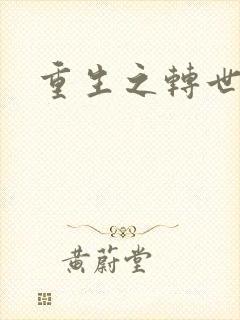 重生之轉世
黃蔚堂